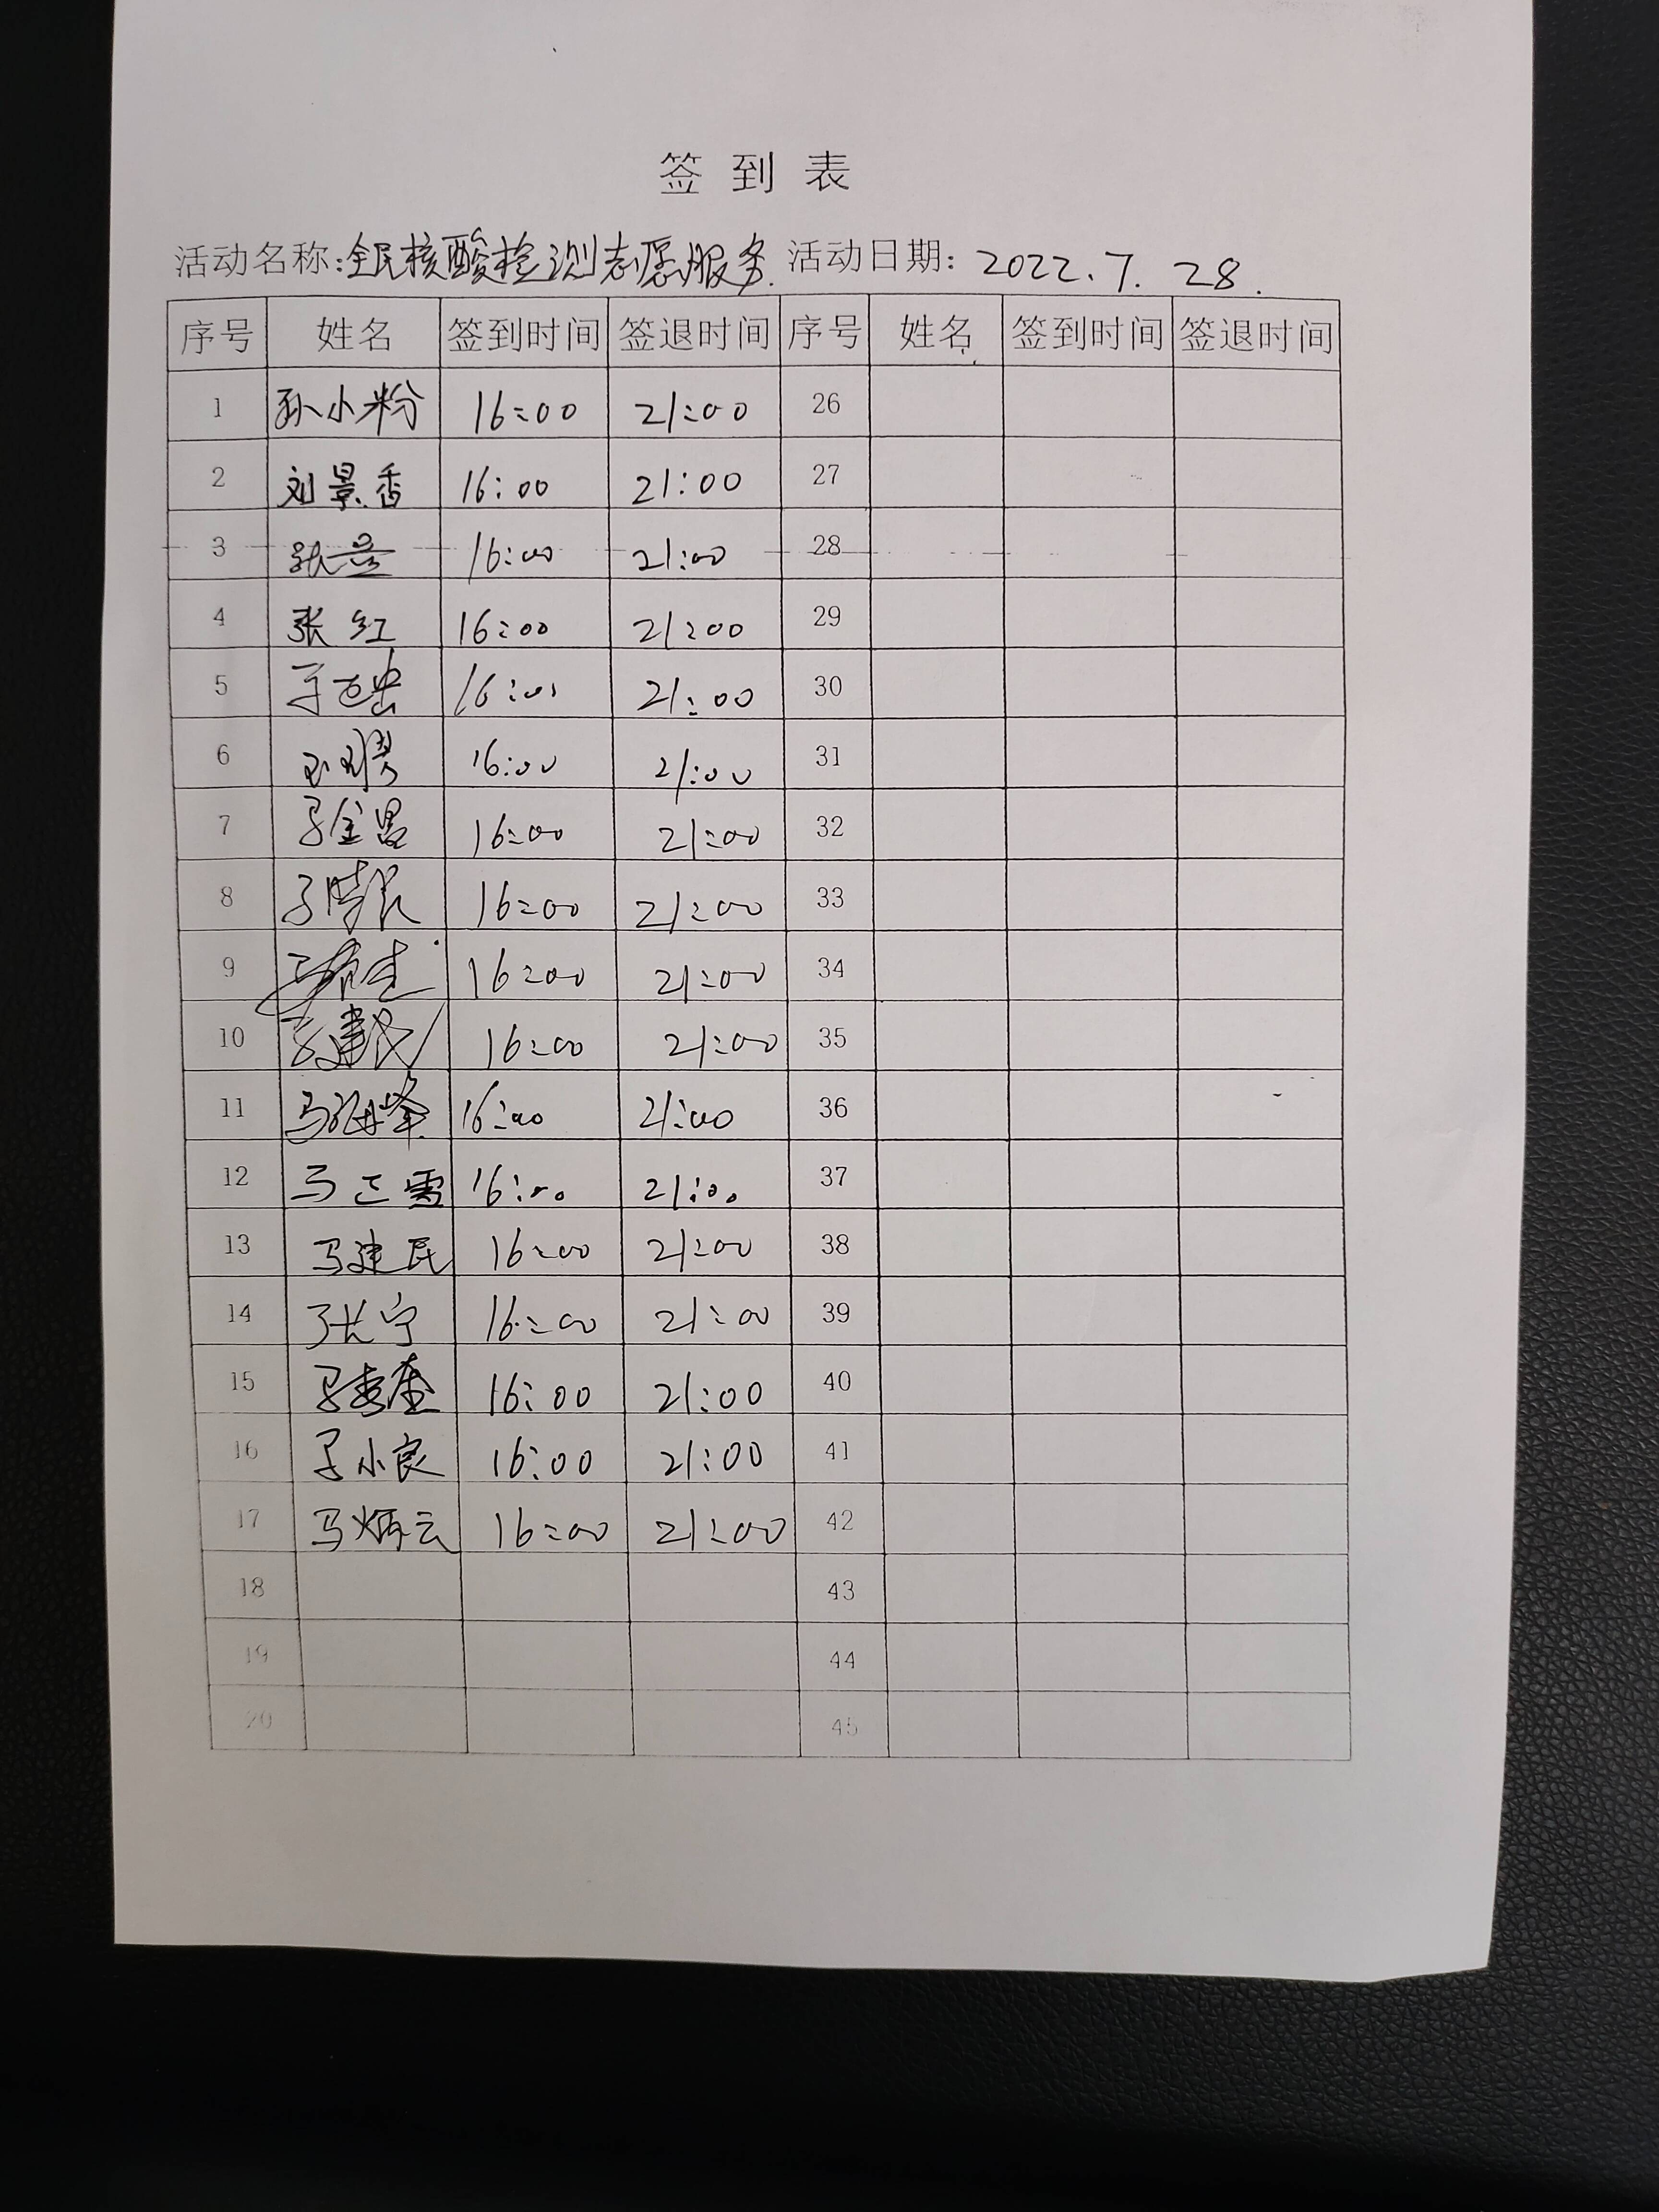 签到表
活动名称:全民核酸检测志愿服务. 活动日期: 2022.7.28.
序号 姓名 签到时间 签退时间 序号 姓名 签到时间 签退时间
1 孙小粉 16:00 21:00 26
2 刘景香 16:00 21:00 27
3 16:00 21:00 28
4 张红 16:00 21:00 29
5 16:00 21:00 30
6 16:00 21:00 31
7 马金昌 16:00 21:00 32
8 16:00 21:00 33
9 16:00 21:00 34
10 16:00 21:00 35
11 16:00 21:00 36
12 马正雷 16:00 21:00 37
13 马建民 16:00 21:00 38
14 16:00 21:00 39
15 16:00 21:00 40
16 马小良 16:00 21:00 41
17 马炳云 16:00 21:00 42
18 43
19 44
20 45